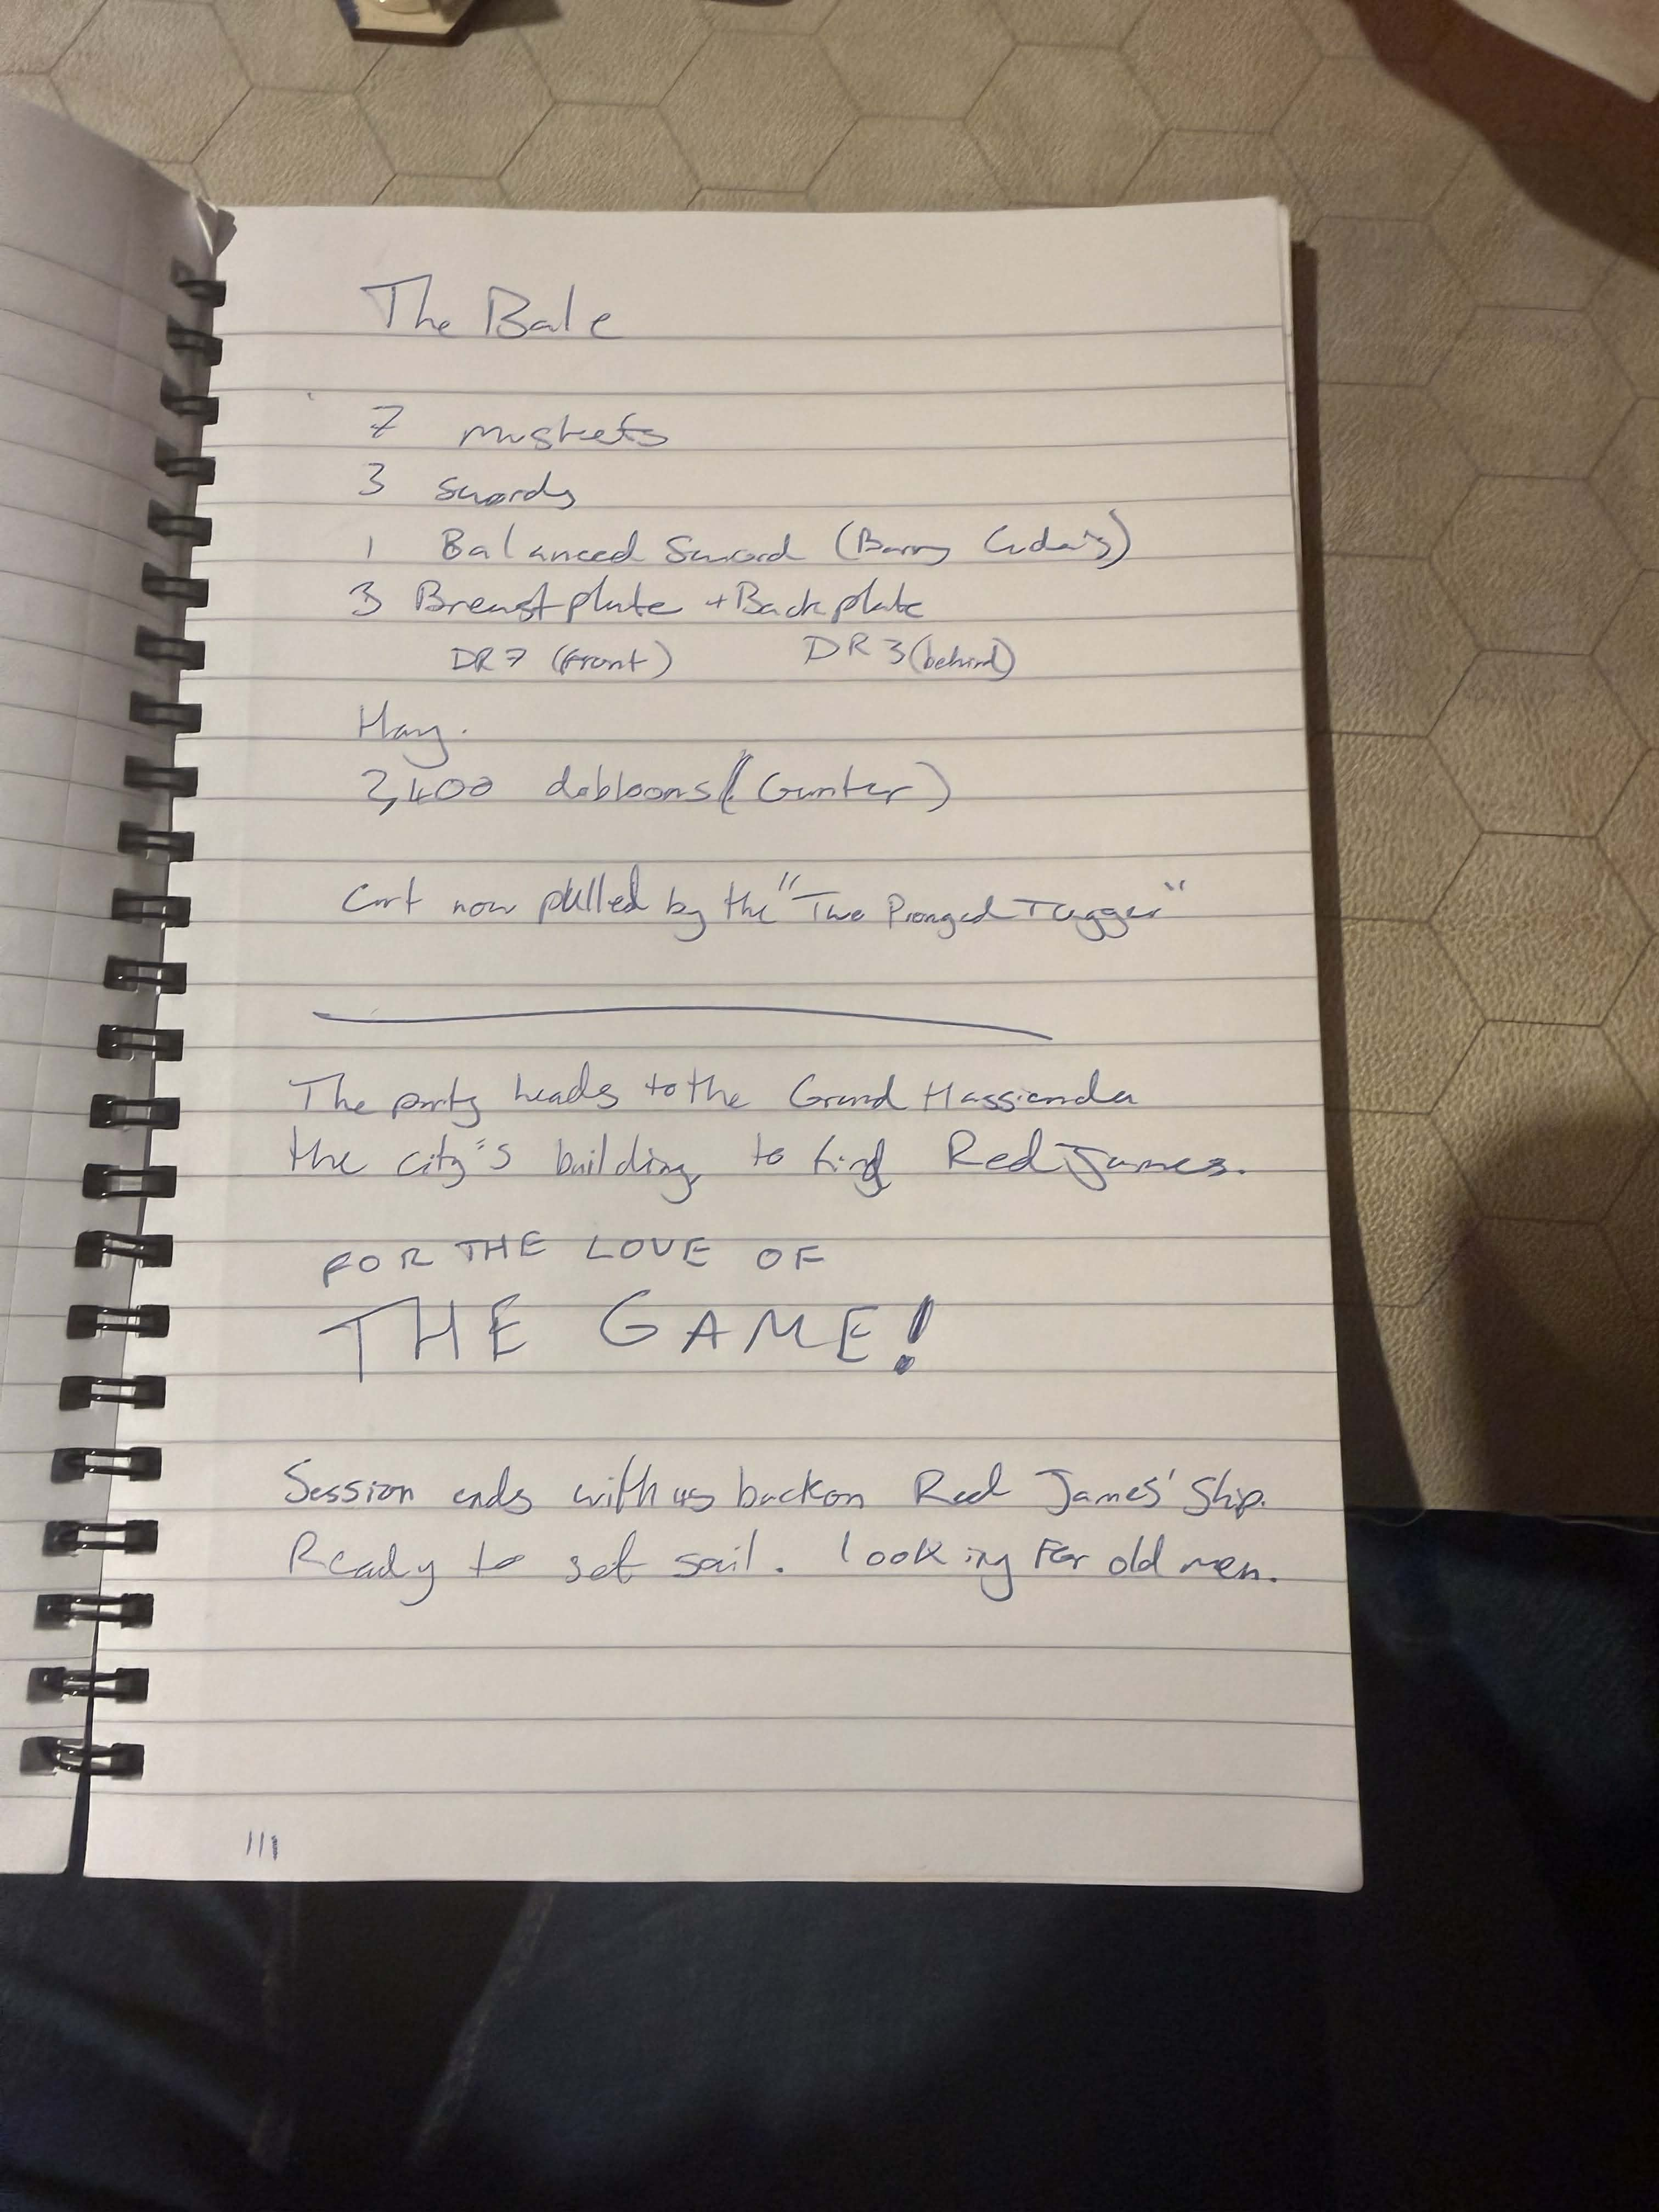 The Bale
7 muskets
3 swords
1 Balanced Sword (Barry
3 Breastplate + Backplate
DR7 (front) DR3 (behind)
Hay.
2,400 dobloons (Gunter)
Cart now pulled by the "Two Pronged Tugger"
The party heads to the Grand Hassienda
the city's building, to find Red James.
FOR THE LOVE OF
THE GAME!
Session ends with us back on Red James' Ship.
Ready to set sail. looking For old men.
111